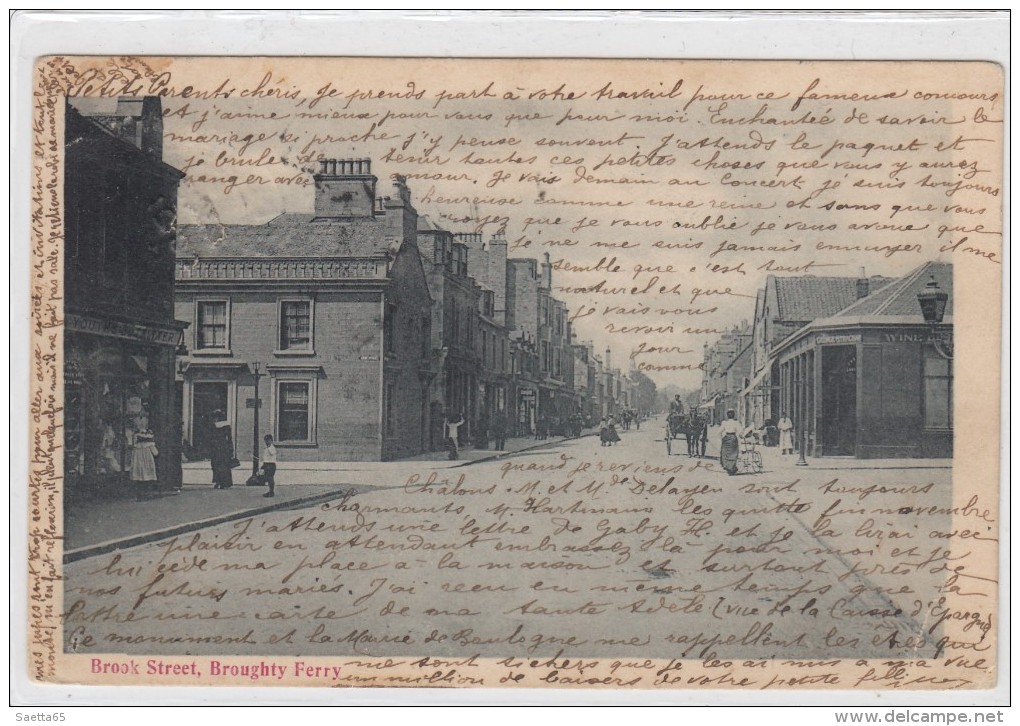 Petits Parents chéris, je prends part à votre travail pour ce fameux concours
et j'aime mieux pour vous que pour moi. Enchantée de savoir le
mariage si proche j'y pense souvent. J'attends le paquet et
je brûle de tenir toutes ces petites choses que vous y aurez
ranger avec amour. Je vais demain au Concert je suis toujours
heureuse comme une reine et sans que vous
croyez que je vous oublie je vous avoue que
je ne me suis jamais ennuyer il me
semble que c'est tout
naturel et que
je vais vous
revoir un
jour
comme
quand je reviens de
Châlons. M. et Mde Delayen sont toujours
charmants, M. Hartmann les quitte fin novembre
J'attends une lettre de Gaby H. et je la lirai avec
plaisir en attendant embrassez là pour moi et je
lui cède ma place à la maison et surtout près de
nos futurs mariés. J'ai reçu en même temps que la
lettre une carte de ma tante Adèle (vue de la Caisse d'Epargne)
Ce monument et la Mairie de Boulogne me rappellent les étés que
Brook Street, Broughty Ferry
me sont si chers que je les ai mis à ma vue
un million de baisers de votre petite fille
mes jupes sont trop courtes pour aller aux soirées et invitations et
WINE
Saetta65
www.delcampe.net